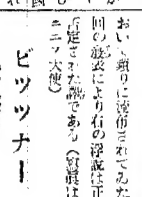 おい 頻りに流布されてゐた
回の發表により右の浮説は正
否定された譯である(寫眞は
ニエツ大使)
ビツツナー